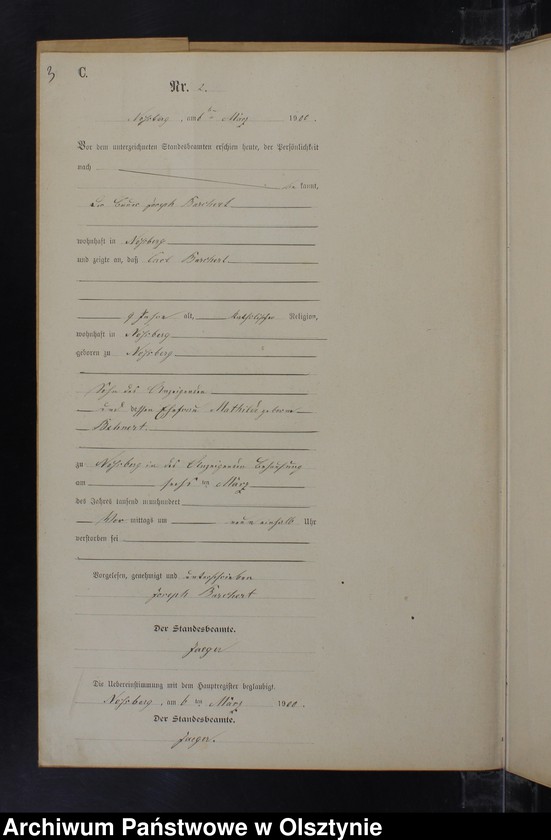 3
C.
Nr. 2.
Noßberg, am 6ten März 1900.
Vor dem unterzeichneten Standesbeamten erschien heute, der Persönlichkeit
nach
kannt,
der Bauer Joseph
wohnhaft in Noßberg
und zeigte an, daß
9 Jahre alt, katholischer Religion,
wohnhaft in Noßberg
geboren zu Noßberg
Sohn des Anzeigenden
und dessen Ehefrau Mathilde geborene
zu Noßberg in des Anzeigenden Behausung
am sechs ten März
des Jahres tausend neunhundert
Vor mittags um neun einhalb Uhr
verstorben sei
Vorgelesen, genehmigt und unterschrieben
Joseph
Der Standesbeamte.
Jaeger
Die Uebereinstimmung mit dem Hauptregister beglaubigt.
Noßberg, am 6 ten März 1900.
Der Standesbeamte.
Jaeger.
Archiwum Państwowe w Olsztynie